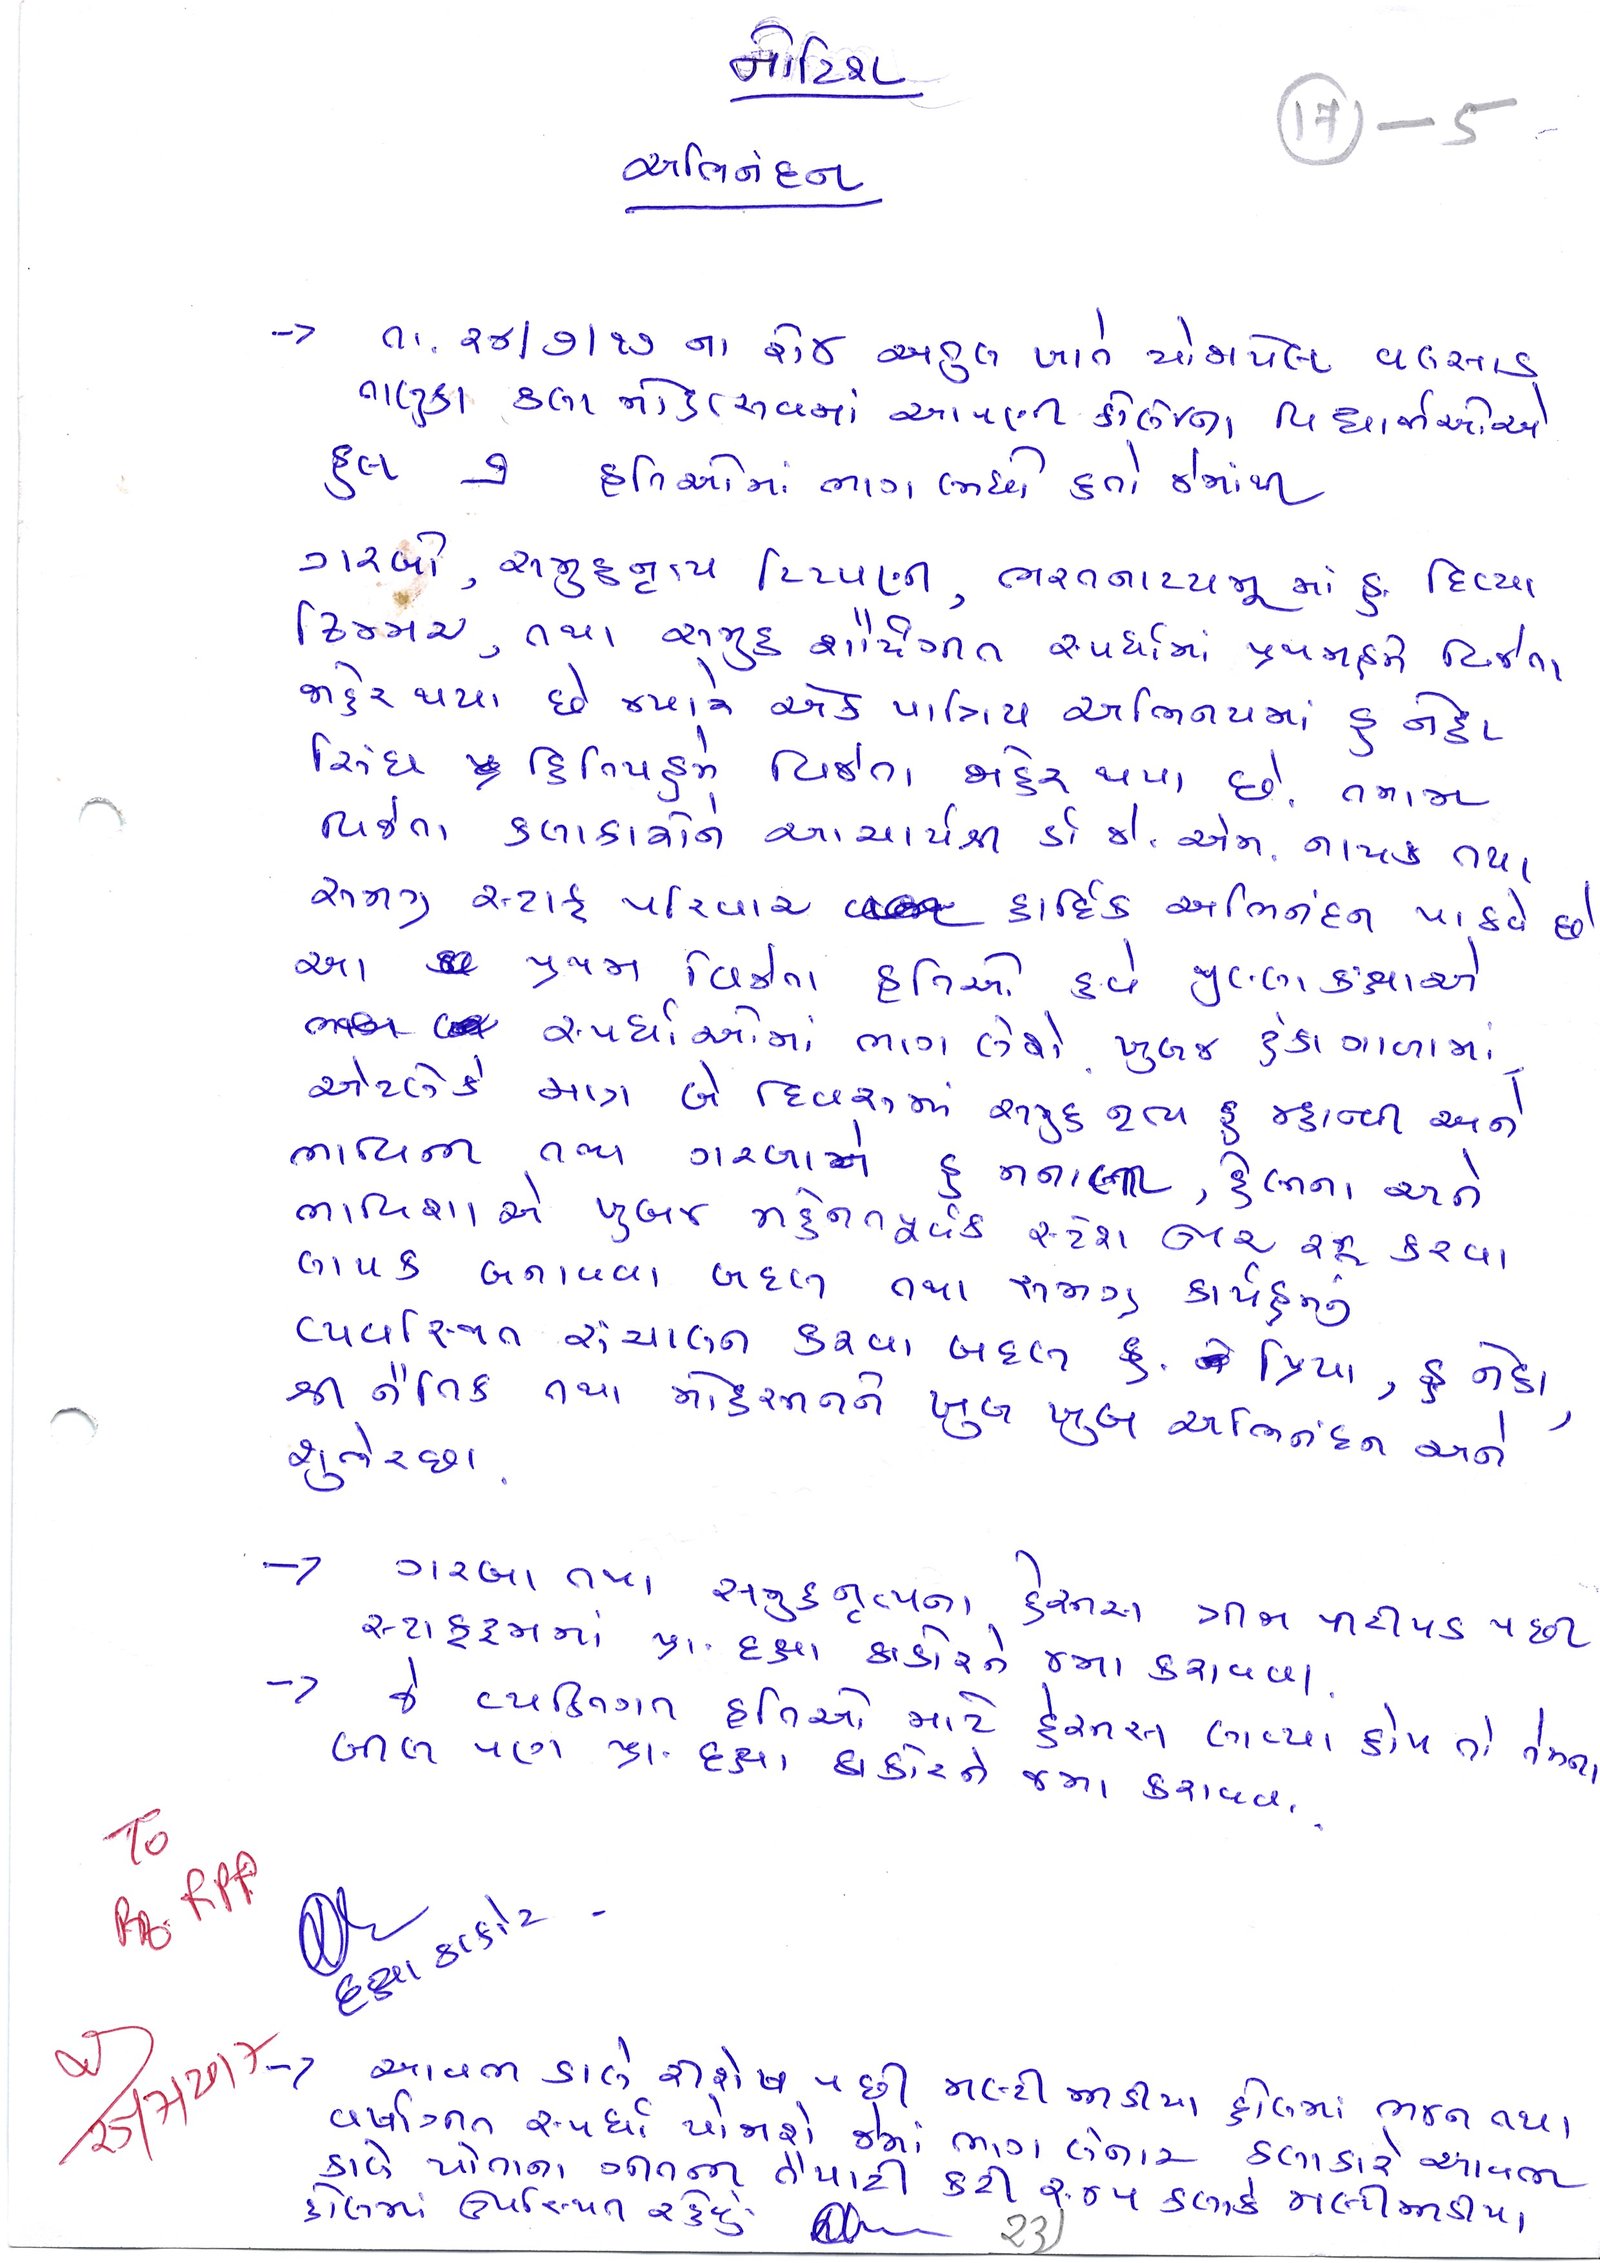 નોટિશ
17 - 5
અભિનંદન
-> તા. ૨૪/૭/૧૭ ના રોજ અતુલ ખાતે યોજાયેલ વલસાડ
તાલુકા કલા મહોત્સવમાં આપણી કોલેજના વિદ્યાર્થીઓએ
કુલ ૭ કૃતિઓમાં ભાગ લીધો હતો જેમાંથી
ગરબો, સમુહનૃત્ય ટિપ્પણી, ભરતનાટ્યમ્ માં કુ. દિવ્યા
તથા સમુહ શૌર્યગીત સ્પર્ધામાં પ્રથમક્રમે વિજેતા
જાહેર થયા છે જ્યારે એક પાત્રિય અભિનયમાં કુ નેહા
સિંઘ દ્વિતિયક્રમે વિજેતા જાહેર થયા છે. તમામ
વિજેતા કલાકારોને આચાર્યશ્રી ડૉ જે. એમ. નાયક તથા
સમગ્ર સ્ટાફ પરિવાર હાર્દિક અભિનંદન પાઠવે છે
આ પ્રથમ વિજેતા કૃતિઓ હવે જીલ્લા કક્ષાએ
સ્પર્ધાઓમાં ભાગ લેશે. ખુબજ ટુંકા ગાળામાં
એટલેકે માત્ર બે દિવસમાં સમુહ નૃત્ય કુ જ્હાન્વી અને
ભાવિની તથા ગરબાએ કુ મનાલી, હેલીના અને
ભાવિશાએ ખુબજ મહેનતપૂર્વક સ્ટેશ ઉપર રજૂ કરવા
લાયક બનાવવા બદલ તથા સમગ્ર કાર્યક્રમનું
વ્યવસ્થિત સંચાલન કરવા બદલ કુ. પ્રિયા, કુ નેહા,
શ્રી નૈતિક તથા મોહસીનને ખુબ ખુબ અભિનંદન અને
શુભેચ્છા.
-> ગરબા તથા સમુહનૃત્યના ડ્રેસીસ ત્રીજા પીરીયડ પછી
સ્ટાફરૂમમાં પ્રા. દક્ષા ઠાકોરને જમા કરાવવા.
-> જે વ્યક્તિગત કૃતિઓ માટે ડ્રેસીસ લાવ્યા હોય તો તેમના
બીલ પણ પ્રા. દક્ષા ઠાકોરને જમા કરાવવા.
To
RPP
દક્ષા ઠાકોર
25/7/2017
-> આવતી કાલે રીશેષ પછી મલ્ટીમીડીયા હોલમાં ભજન તથા
વર્ષાગીત સ્પર્ધા યોજાશે જેમાં ભાગ લેનાર કલાકારે આવતી
કાલે પોતાના ગીતની તૈયારી કરી કલાકે મલ્ટીમીડીયા
હોલમાં ઉપસ્થિત રહેવું.
23